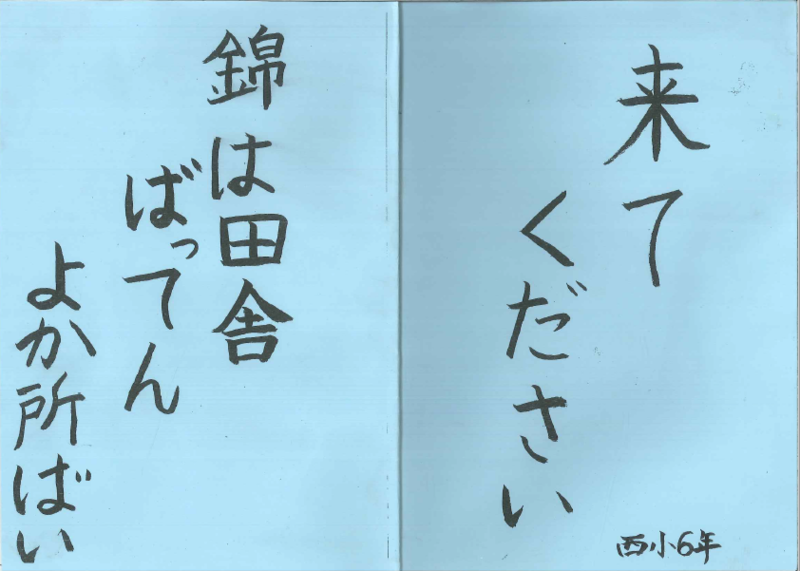 来て
ください
西小6年
錦は田舎
ばってん
よか所ばい